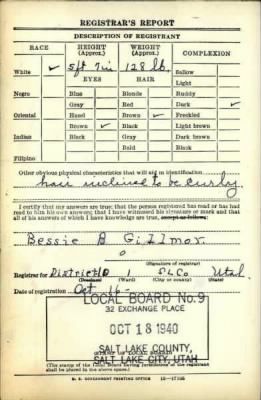 REGISTRAR'S REPORT
DESCRIPTION OF REGISTRANT
RACE HEIGHT (Approx.) WEIGHT (Approx.) COMPLEXION
White ✓ 5ft 7in 128 lb. Sallow
EYES HAIR Light
Negro Blue Blonde Ruddy
Gray Red Dark ✓
Oriental Hazel Brown ✓ Freckled
Brown ✓ Black Light brown
Indian Black Gray Dark brown
Bald Black
Filipino
Other obvious physical characteristics that will aid in identification
hair inclined to be curly
I certify that my answers are true; that the person registered has read or has had
read to him his own answers; that I have witnessed his signature or mark and that
all of his answers of which I have knowledge are true, except as follows:
Bessie B Gillmor
(Signature of registrar)
Registrar for District 10 1 SL Co Utah
(Ward) (City or county)
Date of registration Oct 16
LOCAL BOARD No. 9
32 EXCHANGE PLACE
OCT 18 1940
SALT LAKE COUNTY,
SALT LAKE CITY, UTAH
(STAMP OF LOCAL BOARD)
(The stamp of the Local Board having jurisdiction of the registrant
shall be placed in the above space.)
U. S. GOVERNMENT PRINTING OFFICE